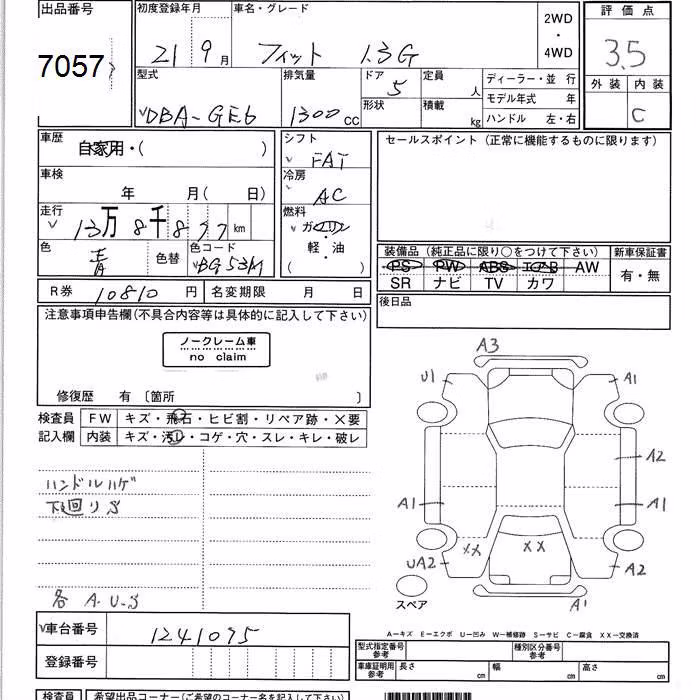 出品番号 初度登録年月 車名・グレード 2WD ・ 4WD 評価点
7057 21 9月 フィット 1.3G 3.5
型式 排気量 ドア 定員 ディーラー・並 行 外装 内装
5 人 モデル年式 年
DBA-GE6 1300cc 形状 積載 kg ハンドル 左・右 C
車歴 自家用・( ) シフト FAT セールスポイント (正常に機能するものに限ります)
車検 年 月( 日) 冷房 AC
走行 13万8千877km 燃料 ガソリン
色 青 色替 色コード BG53M 軽・油 ( )
装備品 (純正品に限り○をつけて下さい) 新車保証書
PS PW ABS エアB AW 有・無
SR ナビ TV カワ
R券 10810円 名変期限 月 日 後日品
注意事項申告欄(不具合内容等は具体的に記入して下さい)
ノークレーム車
no claim
修復歴 有 〔箇所 〕
検査員 FW キズ・飛石・ヒビ割・リペア跡・×要
記入欄 内装 キズ・汚レ・コゲ・穴・スレ・キレ・破レ
ハンドルハゲ
下廻りS
各 A.U.S
A3
U1 A1
A2
A1 A1
XX XX
UA2 A2
スペア A1
A-キズ E-エクボ U-凹み W-補修跡 S-サビ C-腐食 XX-交換済
車台番号 1241095
登録番号
型式指定番号 参考 種別区分番号 参考
車庫証明用 参考 長さ cm 幅 cm 高さ cm
検査員 希望出品コーナー(ご希望のコーナー名を記入下さい)